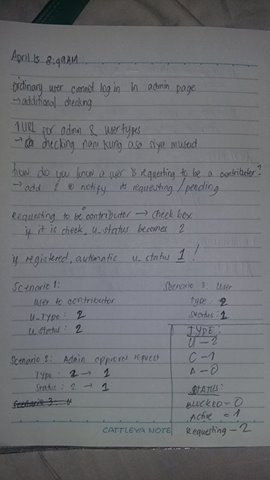 April 15 8:49AM
ordinary user cannot log in in admin page
→ additional checking
1 URL for admin & usertypes
→ checking nani kung asa siya musud
how do you know a user is requesting to be a contributor?
→ add 2 to notify its requesting/pending
Requesting to be contributor → check box
if it is check, u_status becomes 2
if registered, automatic u_status 1!
Scenario 1:
User to contributor
U_Type: 2
U_Status: 2
Scenario 3: User
Type: 2
Status: 1
Scenario 2: Admin approves request
Type: 2 → 1
Status: 2 → 1
Scenario 3:
TYPE:
U - 2
C - 1
A - 0
STATUS:
BLOCKED = 0
Active = 1
Requesting - 2
CATTLEYA NOTE